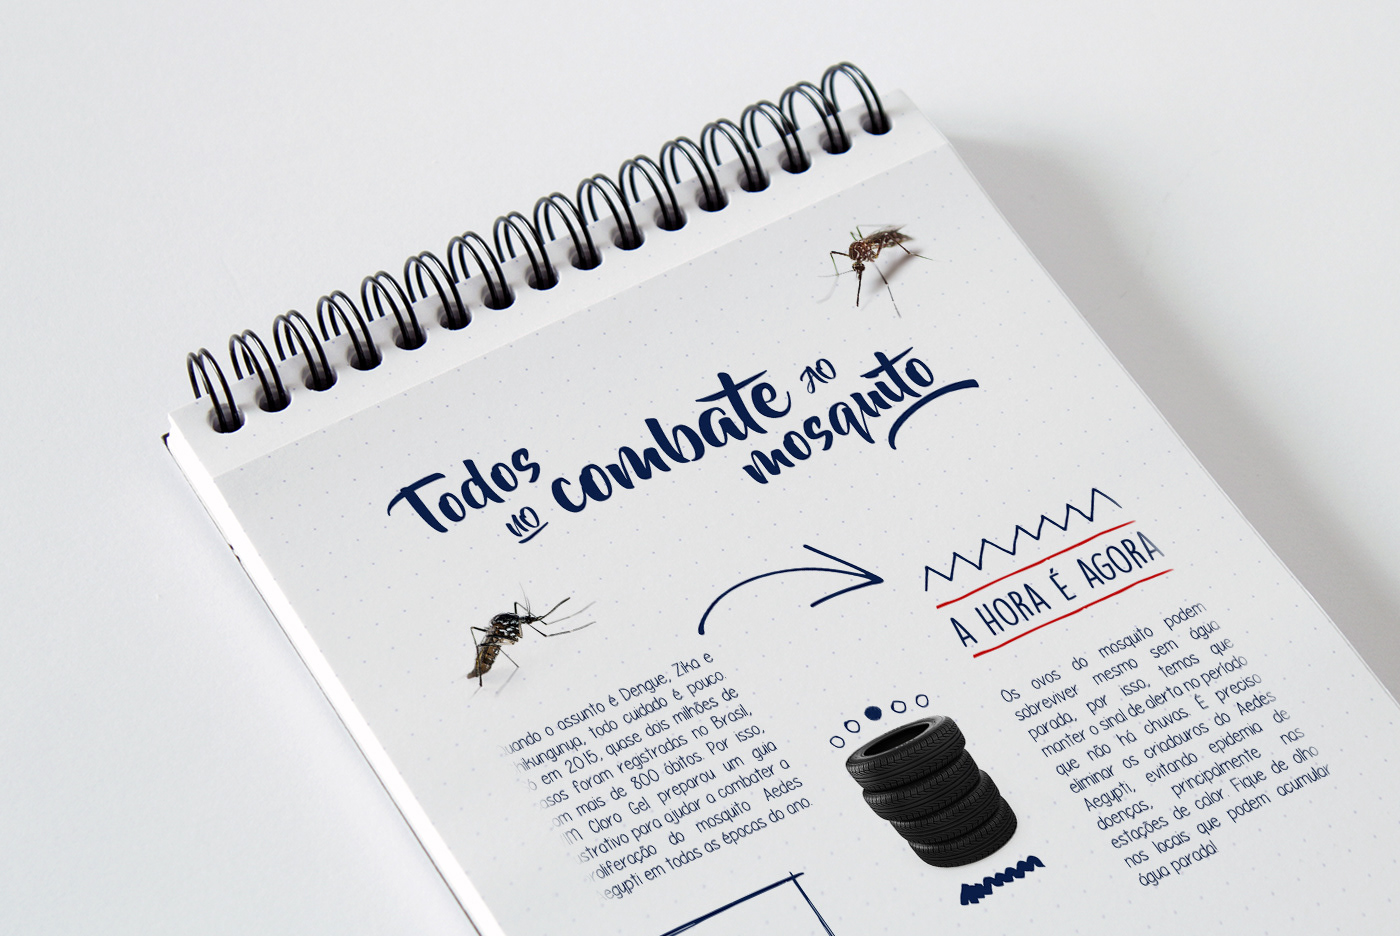 Todos
no combate ao
mosquito
A HORA É AGORA
o assunto é Dengue, Zika e
todo cuidado é pouco.
em 2015, quase dois milhões de
foram registradas no Brasil,
mais de 800 óbitos. Por isso,
Cloro Gel preparou um guia
para ajudar a combater a
do mosquito Aedes
em todas as épocas do ano.
Os ovos do mosquito podem
sobreviver mesmo sem água
parada, por isso, temos que
manter o sinal de alerta no período
que não há chuvas. É preciso
eliminar os criadouros do Aedes
Aegypti, evitando epidemia de
doenças, principalmente nas
estações de calor. Fique de olho
nos locais que podem acumular
água parada!